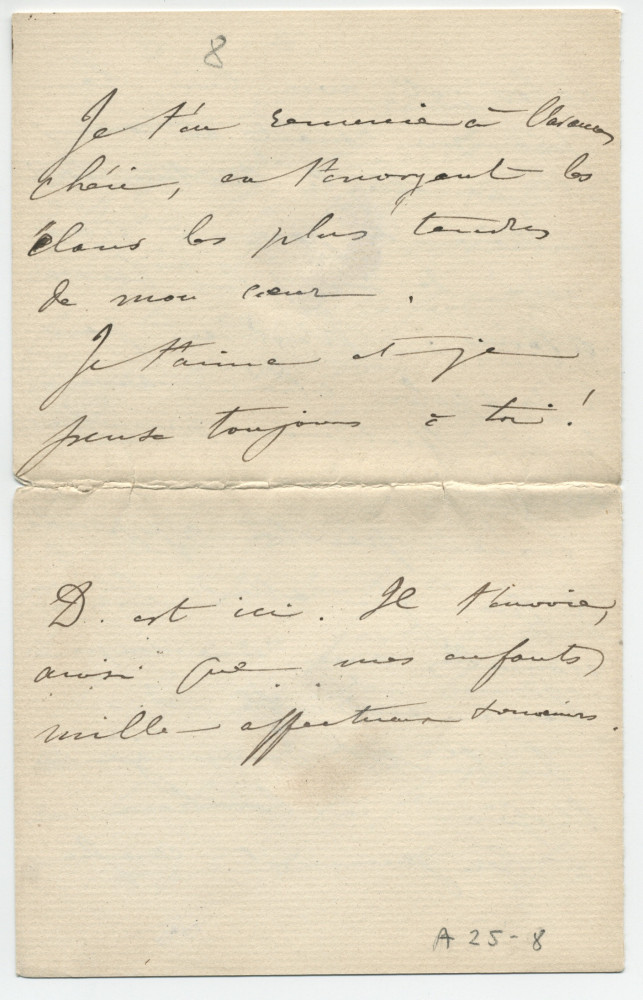 8
Je t'en remercie à
chérie, en t'envoyant les
élans les plus tendres
de mon cœur.
Je t'aime et je
pense toujours à toi!
D. est ici. Il t'envoie,
ainsi que mes enfants,
mille affectueux souvenirs.
A 25-8